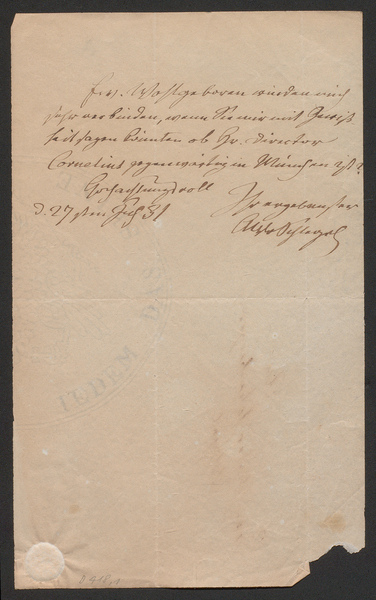 Ew. Wohlgeboren würden mich
sehr verbinden, wenn Sie mir mit Gewiß
heit sagen könnten ob Hr. Director
Cornelius gegenwärtig in München ist?
Hochachtungsvoll
Ihr ergebenster
d. 27sten July 31
AWvSchlegel